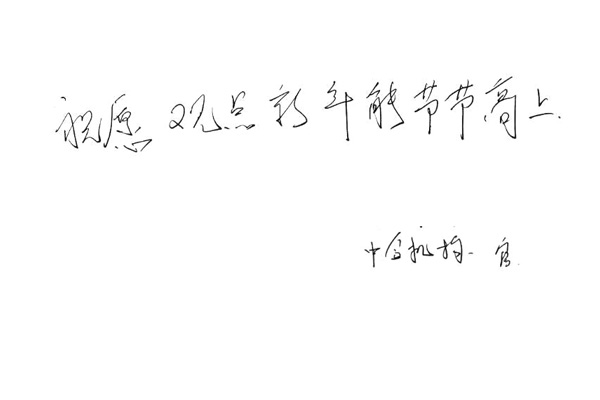 祝愿观点新年能节节高上.
中机构.